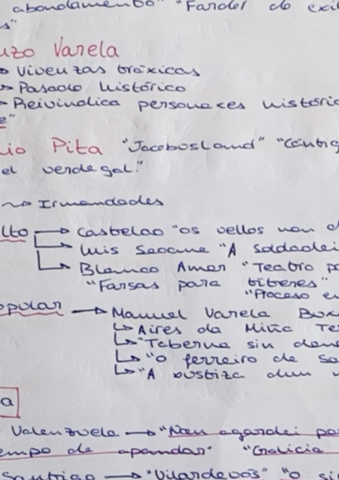 abondamento" "Fardel do exi
s"
nzo Varela
Vivenzas tráxicas
Pasado histórico
Reivindica personaxes histó
e"
io Pita "Jacobusland" "Cántig
el verdegal."
Irmandades
lto → Castelao "os vellos non d
Luis Seoane "A soldadei
Blanco Amor "Teatro p
"Farsas para títeres"
"Proceso e
opular → Manuel Varela Bux
Aires da Miña Te
"Taberna sin
"o ferreiro de Sa
"A xustiza dun
a
Valenzuela → "Nen agardei po
empo de apandar" "Galicia
Santiago → "Vilardevós" "o si